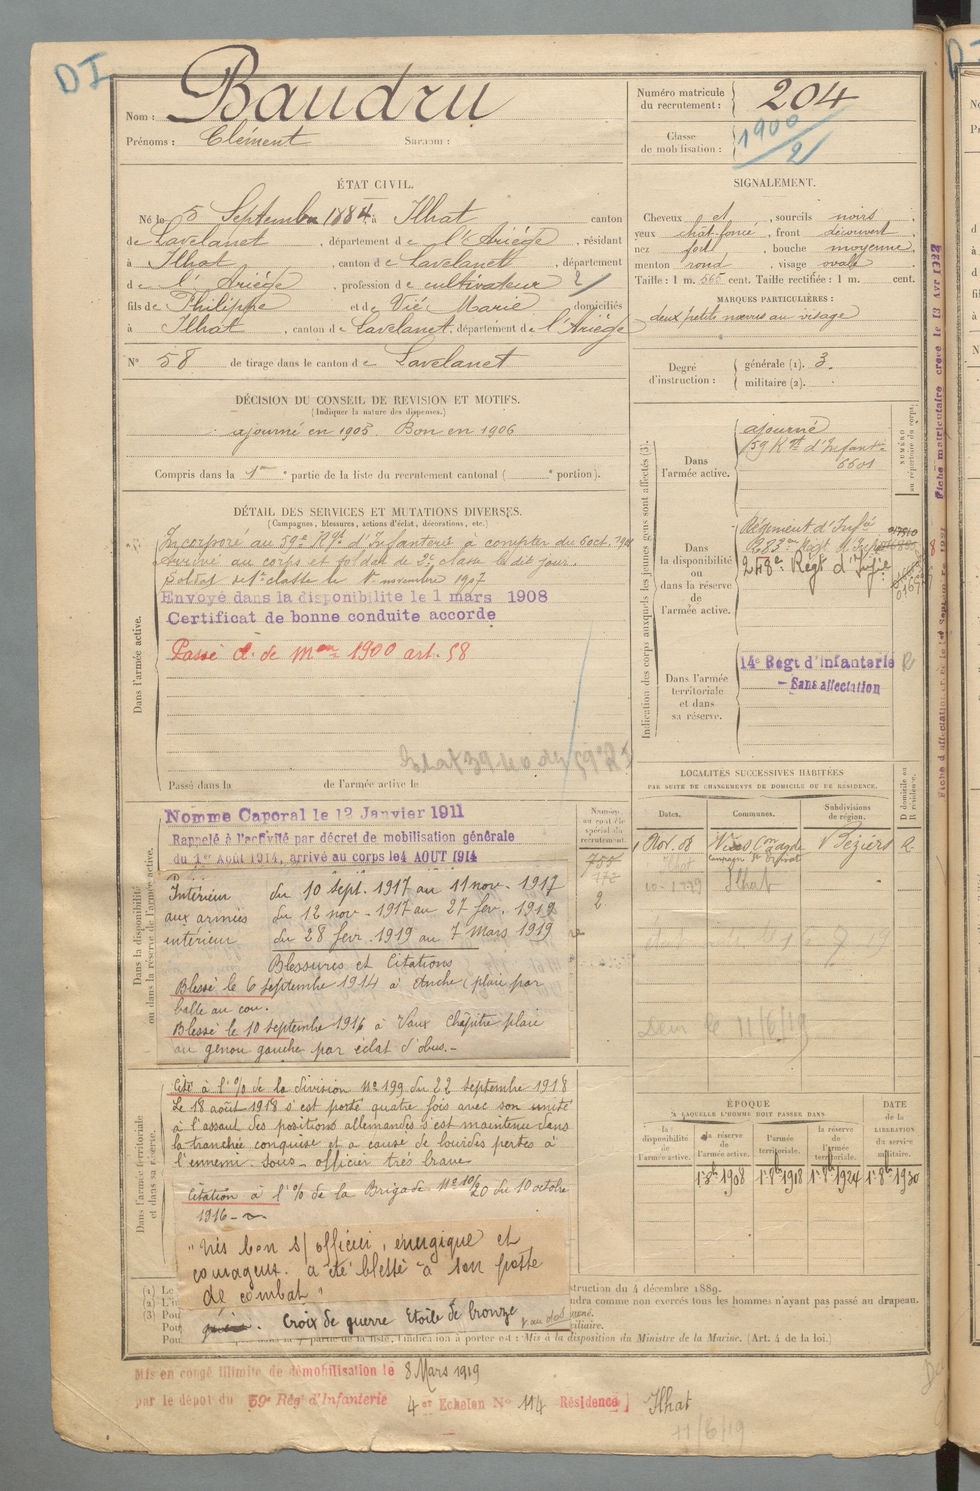 DI
Nom : Baudru
Prénoms : Clément Surnom :
Numéro matricule du recrutement : 204
Classe de mobilisation : 1900/2
ÉTAT CIVIL.
Né le 5 Septembre 1884, à Ilhat canton
de Lavelanet, département de l'Ariège, résidant
à Ilhat, canton de Lavelanet département
de l'Ariège, profession de cultivateur
fils de Philippe et de Vié Marie domiciliés
à Ilhat, canton de Lavelanet, département de l'Ariège
N° 58 de tirage dans le canton de Lavelanet
SIGNALEMENT.
Cheveux et, sourcils noirs,
yeux chât. foncé, front découvert,
nez fort, bouche moyenne,
menton rond, visage ovale
Taille : 1 m. 565 cent. Taille rectifiée : 1 m. cent.
MARQUES PARTICULIÈRES :
deux petits nœvus au visage
Degré d'instruction : générale (1). 3.
militaire (2).
DÉCISION DU CONSEIL DE REVISION ET MOTIFS.
(Indiquer la nature des dispenses.)
ajourné en 1905. Bon en 1906
Compris dans la 1re partie de la liste du recrutement cantonal ( e portion).
DÉTAIL DES SERVICES ET MUTATIONS DIVERSES.
(Campagnes, blessures, actions d'éclat, décorations, etc.)
Dans l'armée active.
Incorporé au 59e Rgt d'Infanterie à compter du 6 oct.
Arrivé au corps et soldat de 2e classe le dit jour.
Soldat de 1e classe le 1er novembre 1907
Envoyé dans la disponibilite le 1 mars 1908
Certificat de bonne conduite accorde
Passé cl. de mon 1900 art. 58
Passé dans la de l'armée active le
Indication des corps auxquels les jeunes gens sont affectés (3).
NUMÉRO au répertoire du corps.
Dans l'armée active.
ajourné
59 Rgt d'Infanterie
6601
la disponibilité ou dans la réserve de l'armée active.
Régiment d'Infie
283e Régt d'Infie
248e Régt d'Infie
Dans l'armée territoriale et dans sa réserve.
14e Regt d'Infanterie R
- Sans affectation
LOCALITÉS SUCCESSIVES HABITÉES
PAR SUITE DE CHANGEMENTS DE DOMICILE OU DE RÉSIDENCE.
Dates. Communes. Subdivisions de région. D domicile ou R résidence.
1 Nov. 08 Vias Con Agde Béziers R.
Ilhat
Ilhat
Dans la disponibilité ou dans la réserve de l'armée active.
Numéro au contrôle spécial du recrutement.
Nomme Caporal le 12 Janvier 1911
Rappelé à l'activité par décret de mobilisation générale
du 1er Août 1914, arrivé au corps le 4 AOUT 1914
Intérieur du 10 sept. 1917 au 11 nov. 1917
aux armées du 12 nov - 1917 au 27 fev. 1919
intérieur du 28 fevr. 1919 au 7 mars 1919
Blessures et Citations
Blessé le 6 septembre 1914 à Auche (plaie par
balle au cou.
Blessé le 10 septembre 1916 à Vaux Chapitre plaie
au genou gauche par éclat d'obus. -
Dans l'armée territoriale et dans sa réserve.
Cité à l'% de la division n° 199 du 22 septembre 1918
Le 18 août 1918 s'est porté quatre fois avec son unité
à l'assaut des positions allemandes s'est maintenu dans
la tranchée conquise et a cause de lourdes pertes à
l'ennemi. Sous-officier très brave
Citation à l'% de la Brigade N° 10/20 du 10 octobre
1916 -
"très bon s/officier, énergique et
courageux. a été blessé à son poste
de combat"
Croix de guerre Etoile de bronze
ÉPOQUE
À LAQUELLE L'HOMME DOIT PASSER DANS
DATE de la LIBÉRATION du service militaire.
la disponibilité de l'armée active. la réserve de l'armée active. l'armée territoriale. la réserve de l'armée territoriale.
1r 8b 1908 1r 8b 1918 1r 8b 1924 1r 8b 1930
struction du 4 décembre 1889.
ndra comme non exercés tous les hommes n'ayant pas passé au drapeau.
partie de la liste, l'indication à porter est : Mis à la disposition du Ministre de la Marine. (Art. 4 de la loi.)
Mis en congé illimité de démobilisation le 8 Mars 1919
par le dépot du 59e Rég' d'Infanterie 4er Echelon N° 114 Résidence Ilhat
11/6/19
Fiche matriculaire créée le 13 Avr 1922